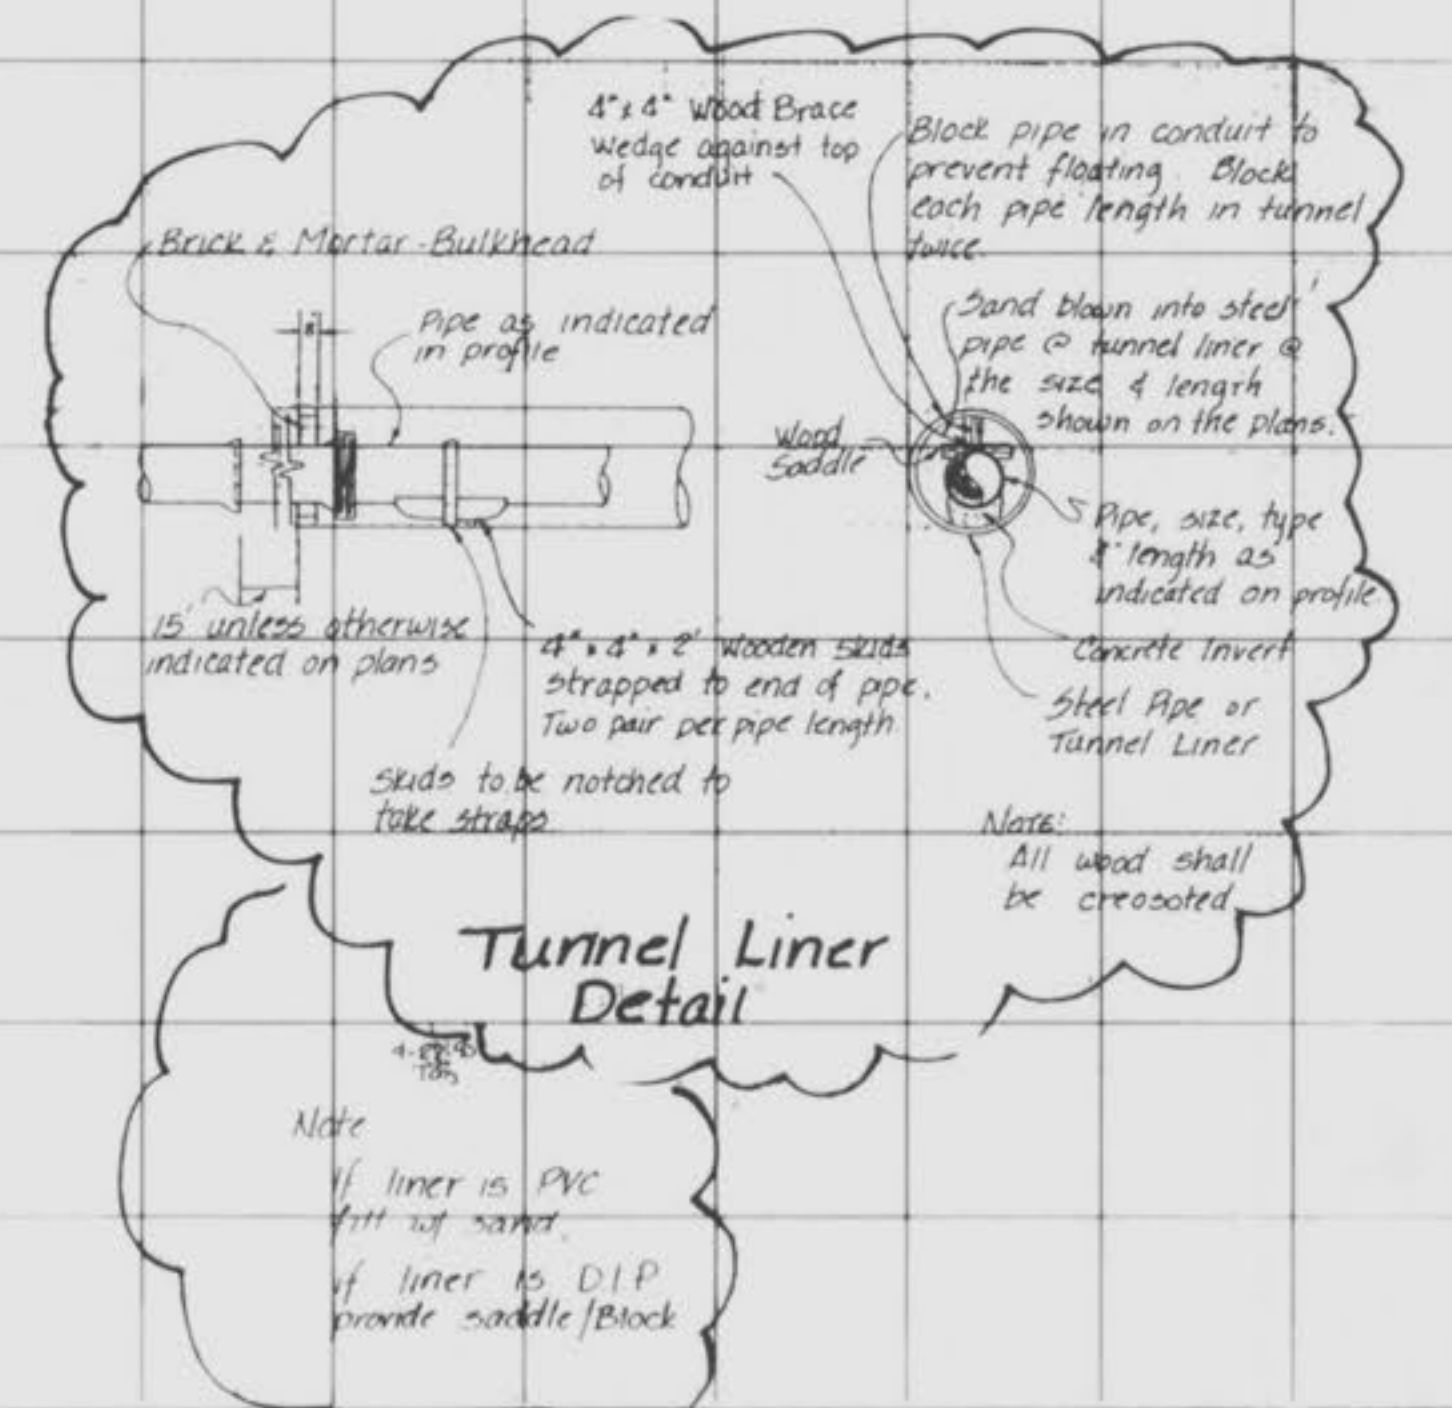 4" x 4" Wood Brace
Wedge against top
of conduit
Block pipe in conduit to
prevent floating. Block
each pipe length in tunnel
twice.
Brick & Mortar-Bulkhead
Pipe as indicated
in profile
Sand blown into steel
pipe @ tunnel liner @
the size & length
shown on the plans.
Wood
Saddle
Pipe, size, type
& length as
indicated on profile
15' unless otherwise
indicated on plans
4" x 4" x 2' Wooden Skids
strapped to end of pipe.
Two pair per pipe length.
Concrete Invert
Steel Pipe or
Tunnel Liner
Skids to be notched to
take straps.
Note:
All wood shall
be creosoted
Tunnel Liner
Detail
Note
If liner is PVC
fill w/ sand.
if liner is DIP
provide saddle/Block